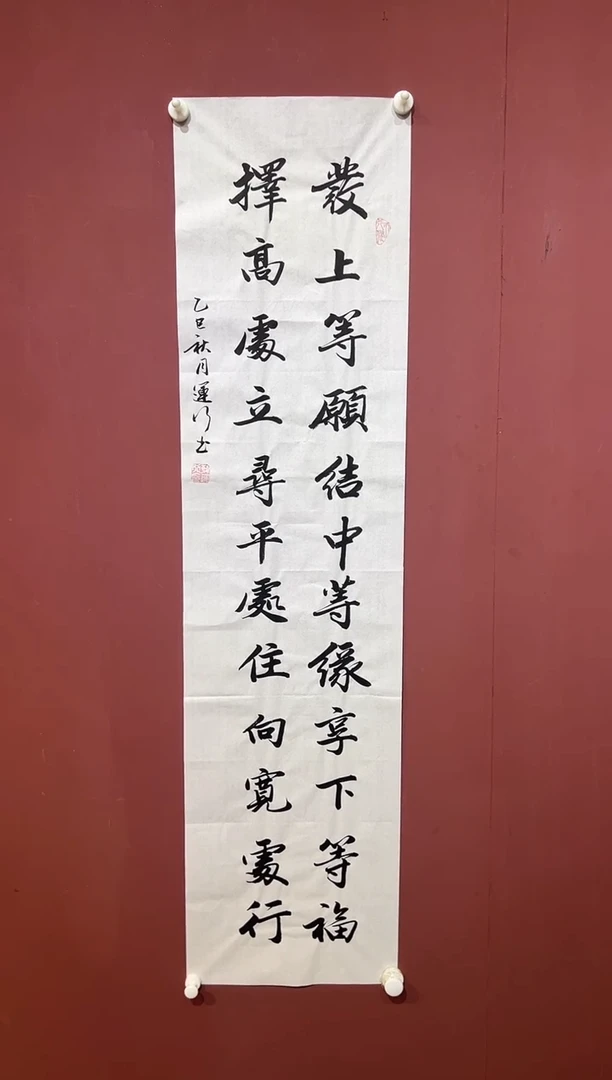 發上等願结中等緣享下等福
擇高處立尋平處住向寬處行
乙巳秋月運行書